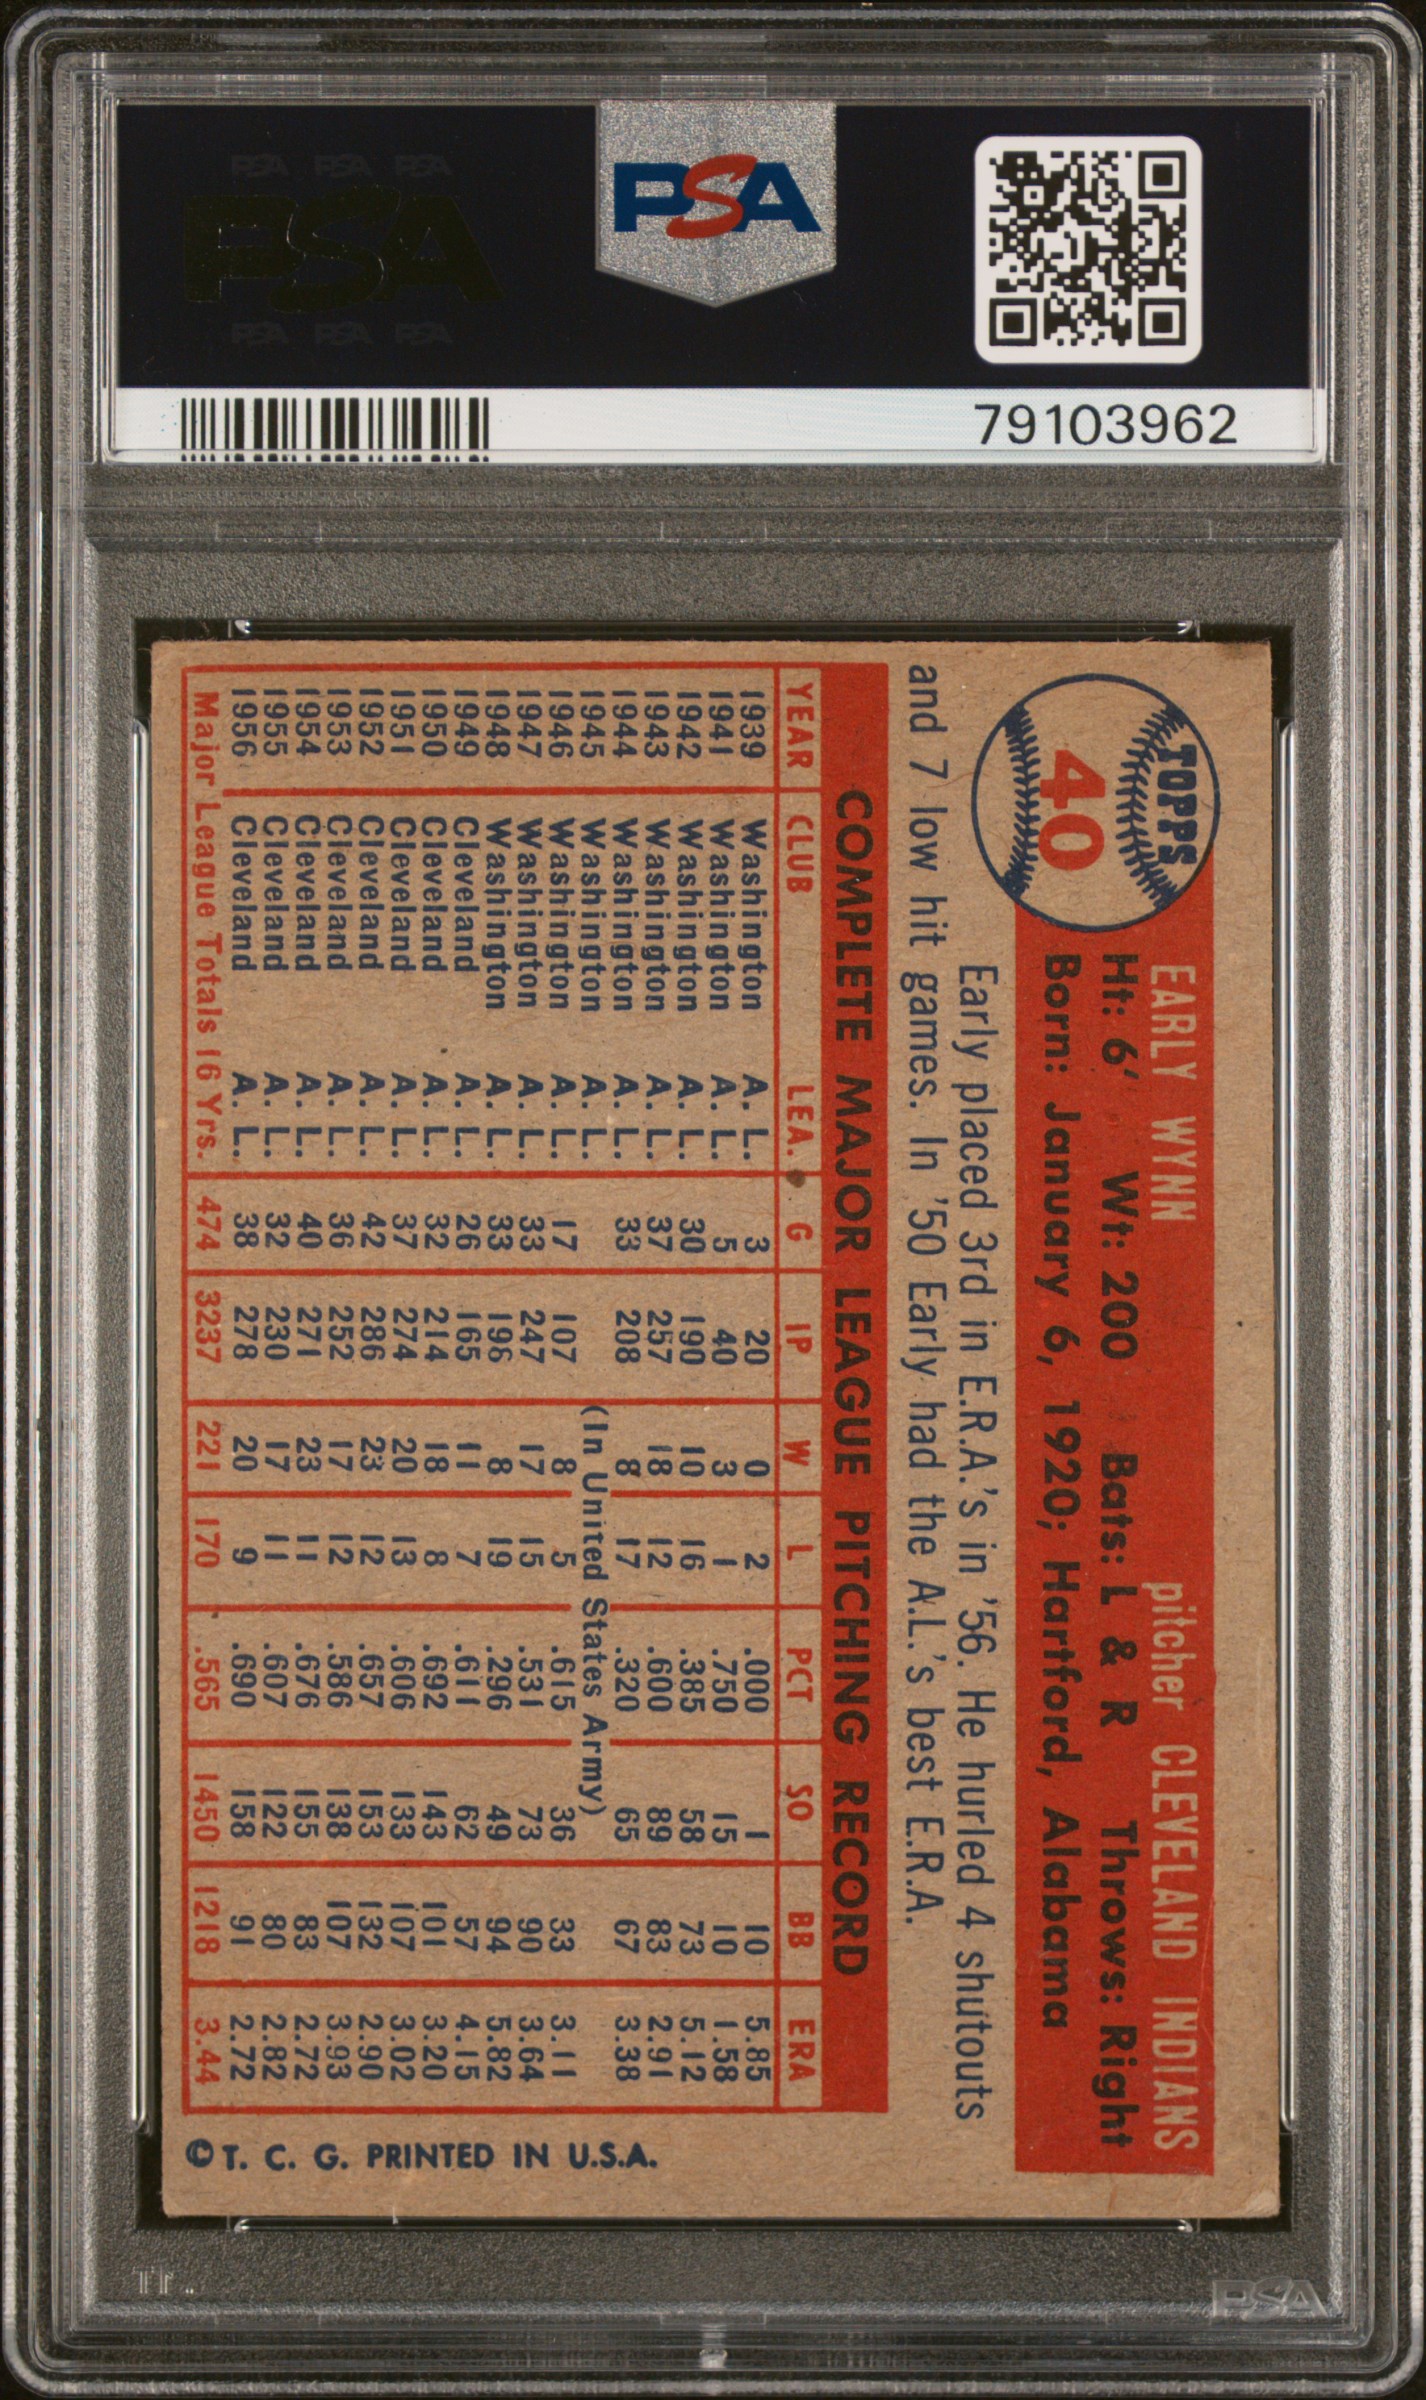 PSA PSA PSA
PSA
PSA PSA PSA
PSA
79103962
TOPPS
40
EARLY WYNN pitcher CLEVELAND INDIANS
Ht: 6' Wt: 200 Bats: L & R Throws: Right
Born: January 6, 1920; Hartford, Alabama
Early placed 3rd in E.R.A.'s in '56. He hurled 4 shutouts
and 7 low hit games. In '50 Early had the A.L.'s best E.R.A.
COMPLETE MAJOR LEAGUE PITCHING RECORD
YEAR CLUB LEA. G IP W L PCT SO BB ERA
1939 Washington A. L. 3 20 0 2 .000 1 10 5.85
1941 Washington A. L. 5 40 3 1 .750 15 10 1.58
1942 Washington A. L. 30 190 10 16 .385 58 73 5.12
1943 Washington A. L. 37 257 18 12 .600 89 83 2.91
1944 Washington A. L. 33 208 8 17 .320 65 67 3.38
1945 Washington A. L. (In United States Army)
1946 Washington A. L. 17 107 8 5 .615 36 33 3.11
1947 Washington A. L. 33 247 17 15 .531 73 90 3.64
1948 Washington A. L. 33 196 8 19 .296 49 94 5.82
1949 Cleveland A. L. 26 165 11 7 .611 62 57 4.15
1950 Cleveland A. L. 32 214 18 8 .692 143 101 3.20
1951 Cleveland A. L. 37 274 20 13 .606 133 107 3.02
1952 Cleveland A. L. 42 286 23 12 .657 153 132 2.90
1953 Cleveland A. L. 36 252 17 12 .586 138 107 3.93
1954 Cleveland A. L. 40 271 23 11 .676 155 83 2.72
1955 Cleveland A. L. 32 230 17 11 .607 122 80 2.82
1956 Cleveland A. L. 38 278 20 9 .690 158 91 2.72
Major League Totals 16 Yrs. 474 3237 221 170 .565 1450 1218 3.44
© T. C. G. PRINTED IN U.S.A.
PSA